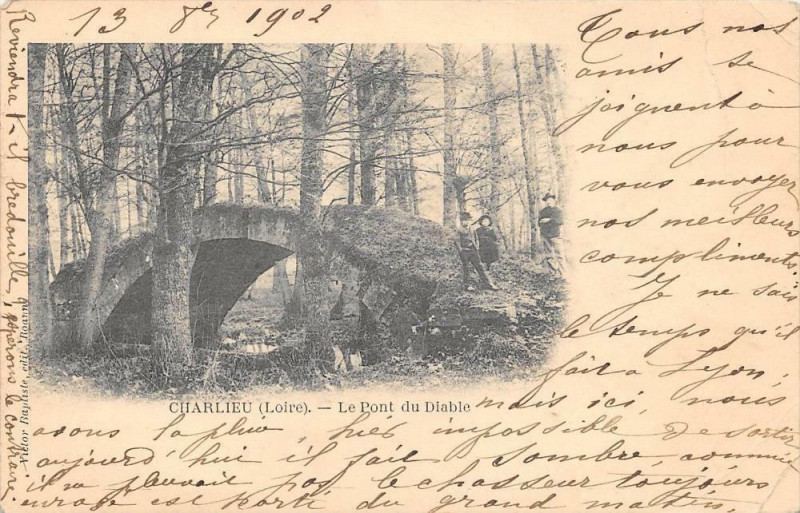 13 8re 1902
Tous nos
amis se
joignent à
nous pour
vous envoyer
nos meilleurs
compliments.
Je ne sais
le temps qu'il
fait à Lyon,
mais ici, nous
avons la pluie, hier impossible de sortir
aujourd'hui il fait sombre, comme
il ne pleuvait pas le chasseur toujours
enragé est parti du grand matin,
Reviendra t-il bredouille, espérons le contraire.
CHARLIEU (Loire). — Le Pont du Diable
Victor Baptiste, édit., Roanne